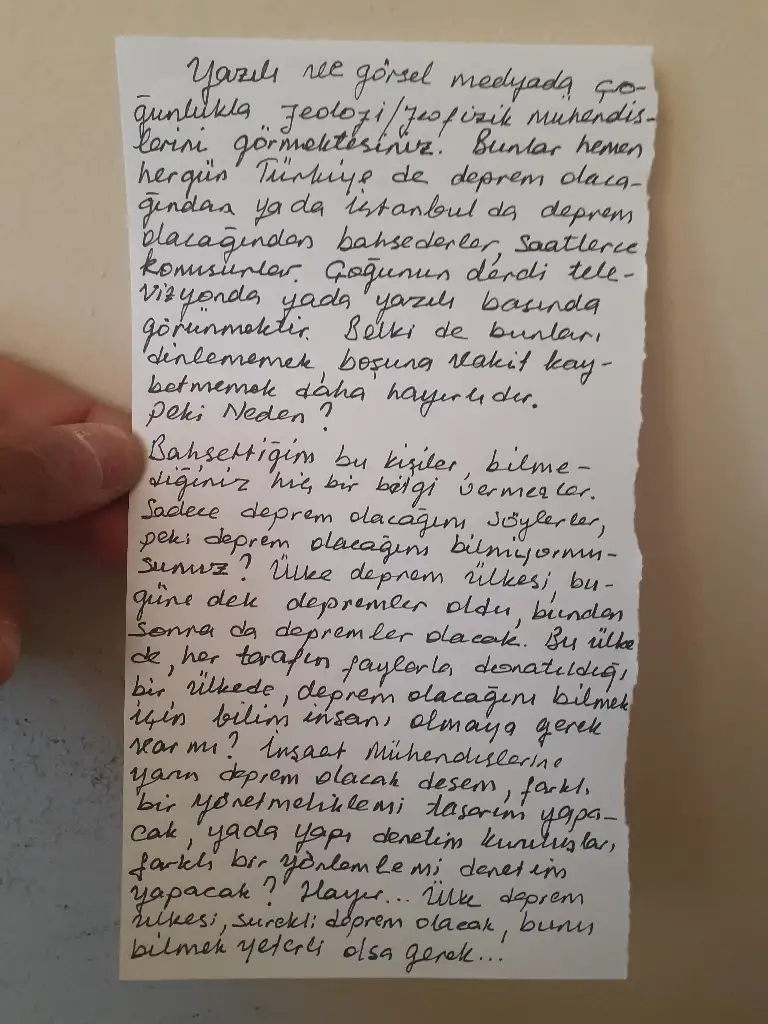 Yazılı ve görsel medyada ço-
ğunlukla jeoloji/jeofizik mühendis-
lerini görmektesiniz. Bunlar hemen
hergün Türkiye de deprem olaca-
ğından yada İstanbul da deprem
olacağından bahsederler, saatlerce
konuşurlar. Çoğunun derdi tele-
vizyonda yada yazılı basında
görünmektir. Belki de bunları
dinlememek, boşuna vakit kay-
betmemek daha hayırlıdır.
Peki Neden?
Bahsettiğim bu kişiler, bilme-
diğiniz hiç bir bilgi vermezler.
Sadece deprem olacağını söylerler,
peki deprem olacağını bilmiyormu-
sunuz? Ülke deprem ülkesi, bu-
güne dek depremler oldu, bundan
sonra da depremler olacak. Bu ülke
de, her tarafın faylarla donatıldığı
bir ülkede, deprem olacağını bilmek
için bilim insanı olmaya gerek
var mı? İnşaat Mühendislerine
yarın deprem olacak desem, farklı
bir yönetmeliklemi tasarım yapa-
cak, yada yapı denetim kuruluşları
farklı bir yöntemlemi denetim
yapacak? Hayır... Ülke deprem
ülkesi, sürekli deprem olacak, bunu
bilmek yeterli olsa gerek...